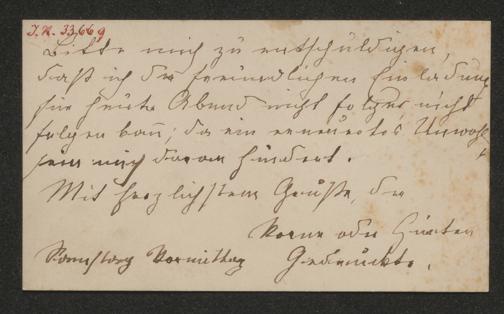 J.N. 33.669
Bitte mich zu entschuldigen,
daß ich der freundlichen Einladung
für heute Abend nicht folgen nicht
folgen kann; da ein erneuertes Unwohl
sein mich daran hindert.
Mit herzlichstem Gruße, der
Vorne oder Hinten
Samstag Vormittag Gedruckte.